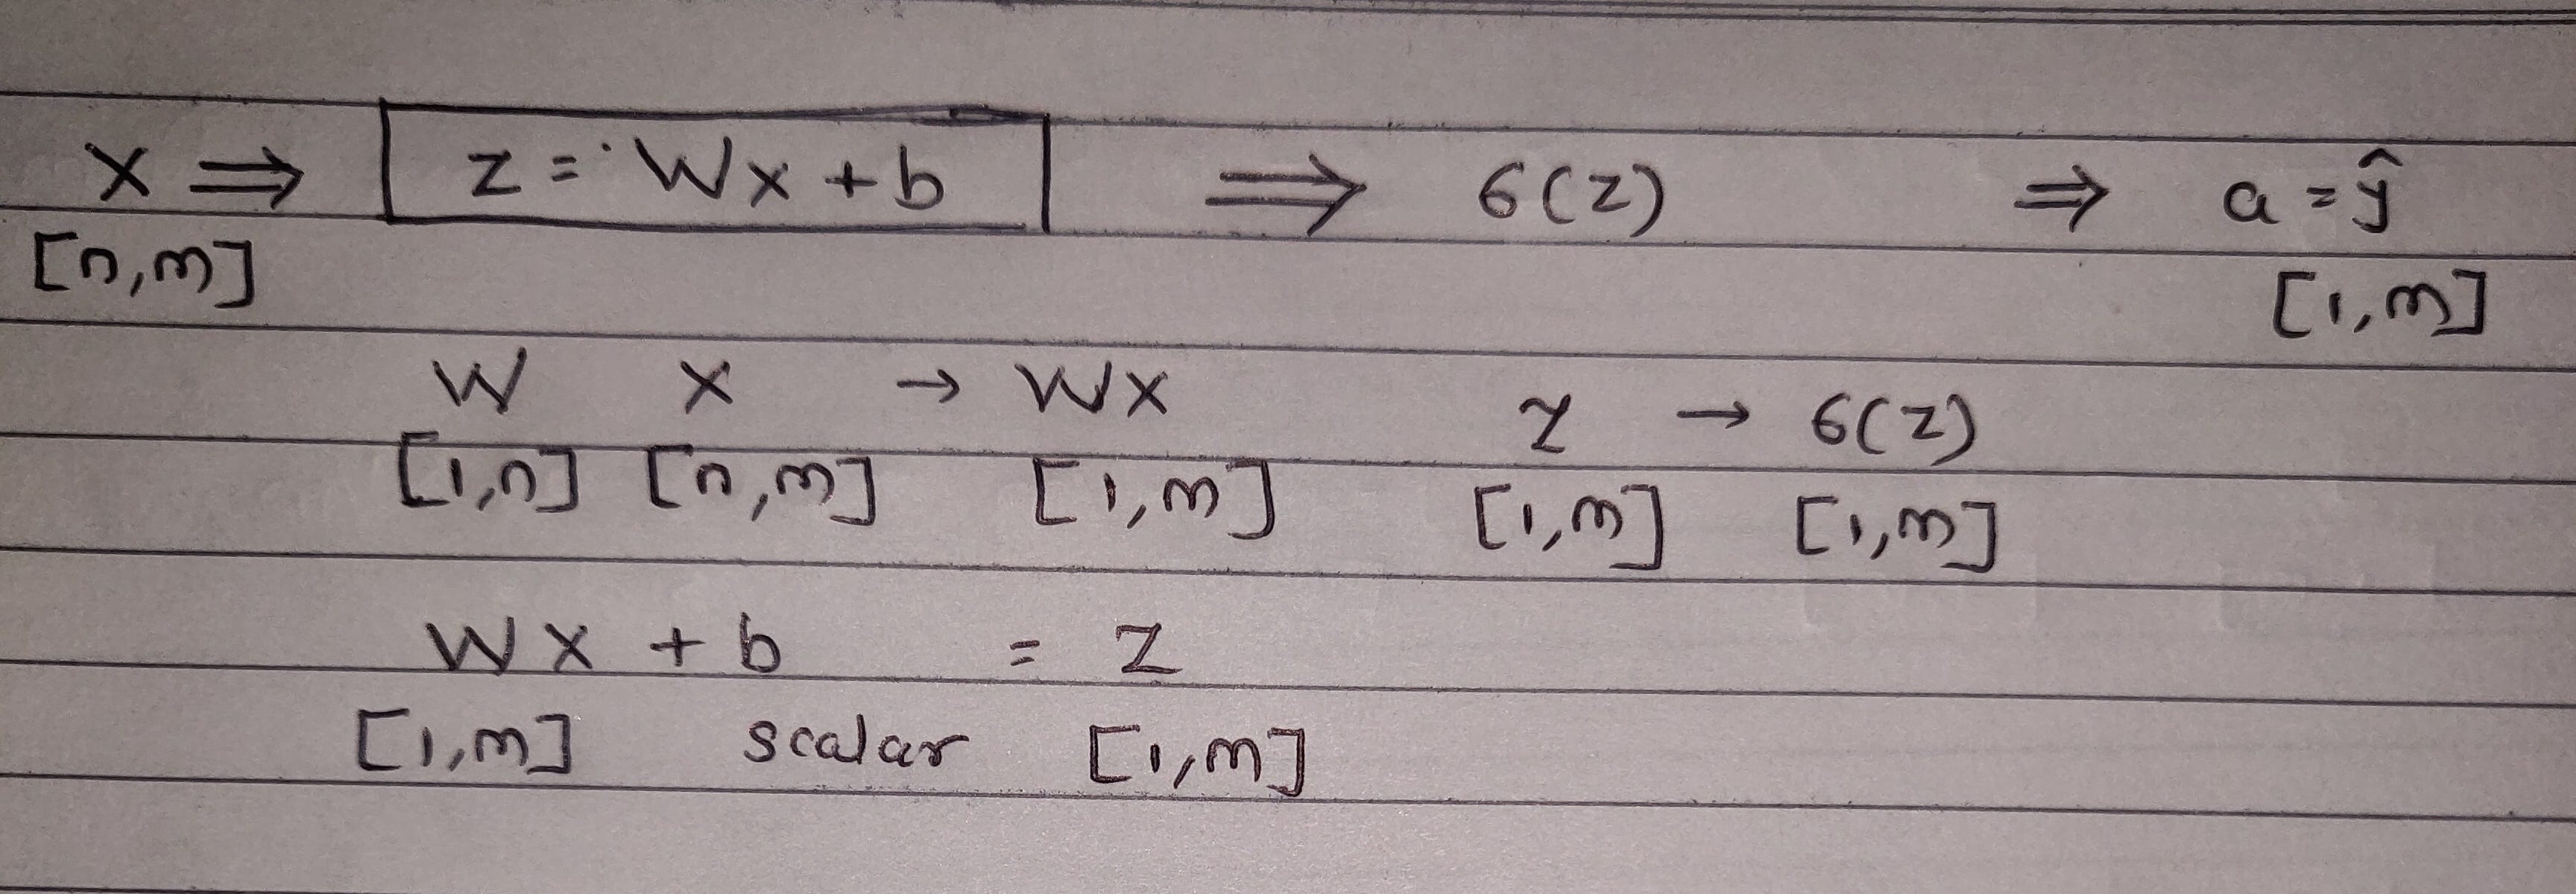 X ⇒ z = Wx + b ⇒ σ(z) ⇒ a = ŷ
[n,m] [1,m]
W X → WX z → σ(z)
[1,n] [n,m] [1,m] [1,m] [1,m]
WX + b = Z
[1,m] scalar [1,m]